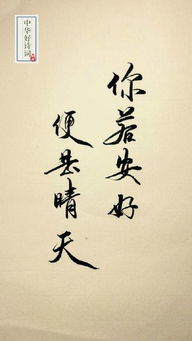 中华好诗词
你若安好
便是晴天